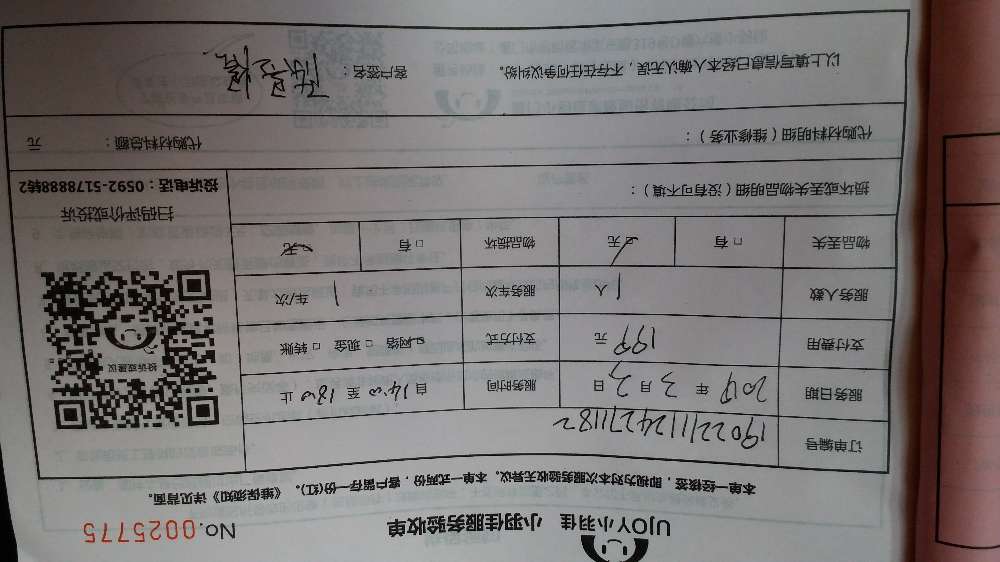 UJOY小羽佳 小羽佳服务验收单
No.0025775
本单一经核签,即视为对本次服务验收无异议。本单一式两份,客户留存一份(红)。《维保须知》详见背面。
订单编号 1902211124271182
服务日期 2019年3月2日 服务时间 自14:00至18:00止
支付费用 199元 支付方式 □网络 □现金 □转账
服务人数 1人 服务车次 1车/次
物品丢失 □有 □无 物品损坏 □有 □无
投诉或建议
扫码评价或投诉
投诉电话:0592-5178888转2
损坏或丢失物品明细(没有可不填):
代购材料明细(维修业务): 代购材料总额: 元
以上填写信息已经本人确认无误,不存在任何争议纠纷。 客户签名: